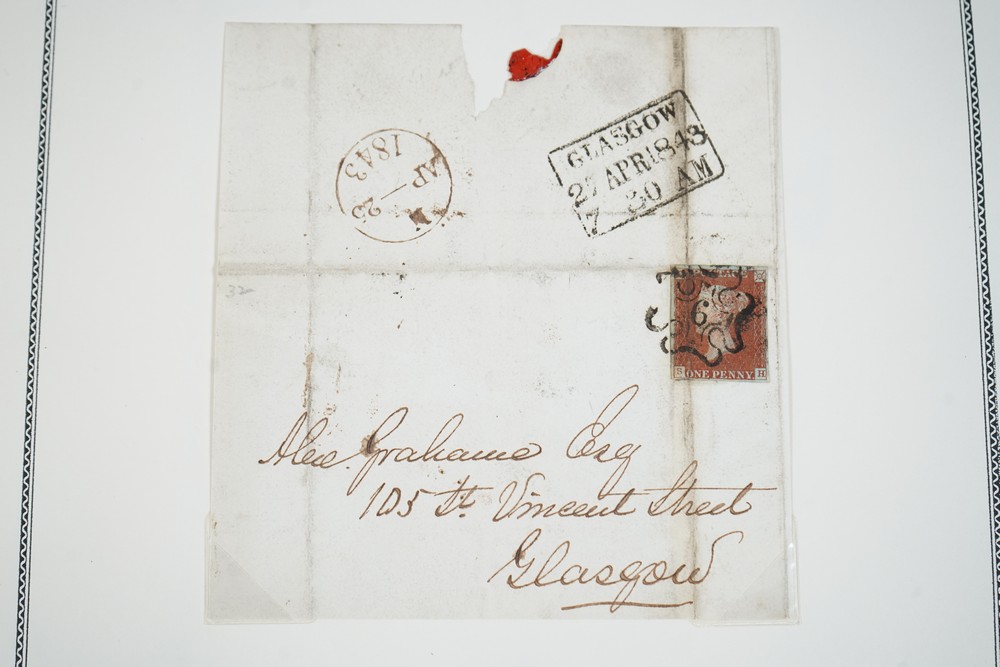 GLASGOW
27 APR 1843
7 30 AM
1843
AP 25
N
32
6
S ONE PENNY H
Alex. Grahame Esq
105 St. Vincent Street
Glasgow